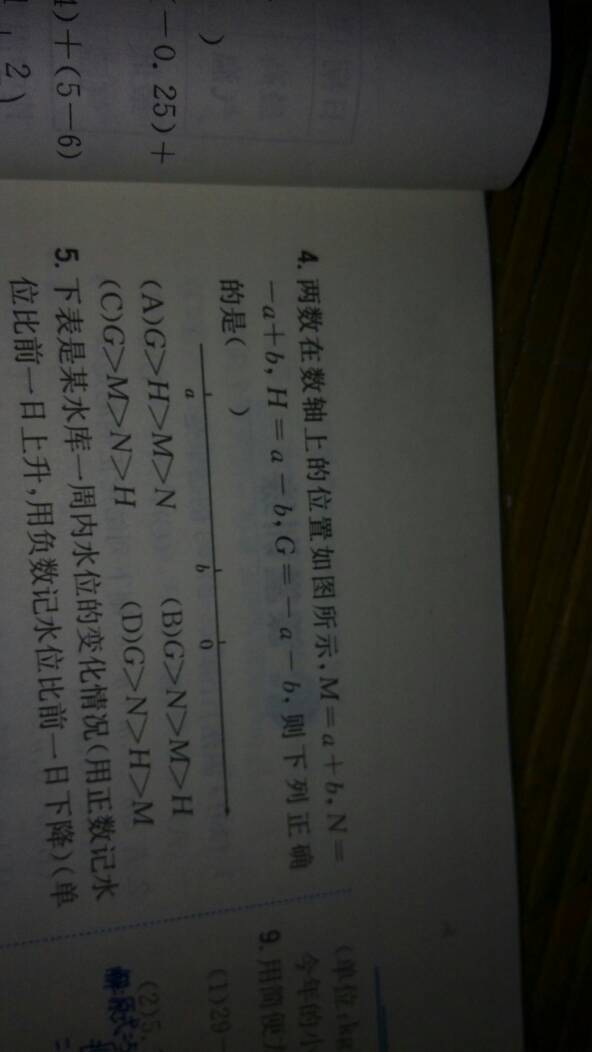 4)+(5-6)
(-0.25)+
)
2)
4. 两数在数轴上的位置如图所示,M=a+b,N=
-a+b,H=a-b,G=-a-b,则下列正确
的是( )
a b 0
(A)G>H>M>N (B)G>N>M>H
(C)G>M>N>H (D)G>N>H>M
5. 下表是某水库一周内水位的变化情况(用正数记水
位比前一日上升,用负数记水位比前一日下降)(单
(单位:k
今年的小
9. 用简便
(1)29-
(2)5.
解:原式=